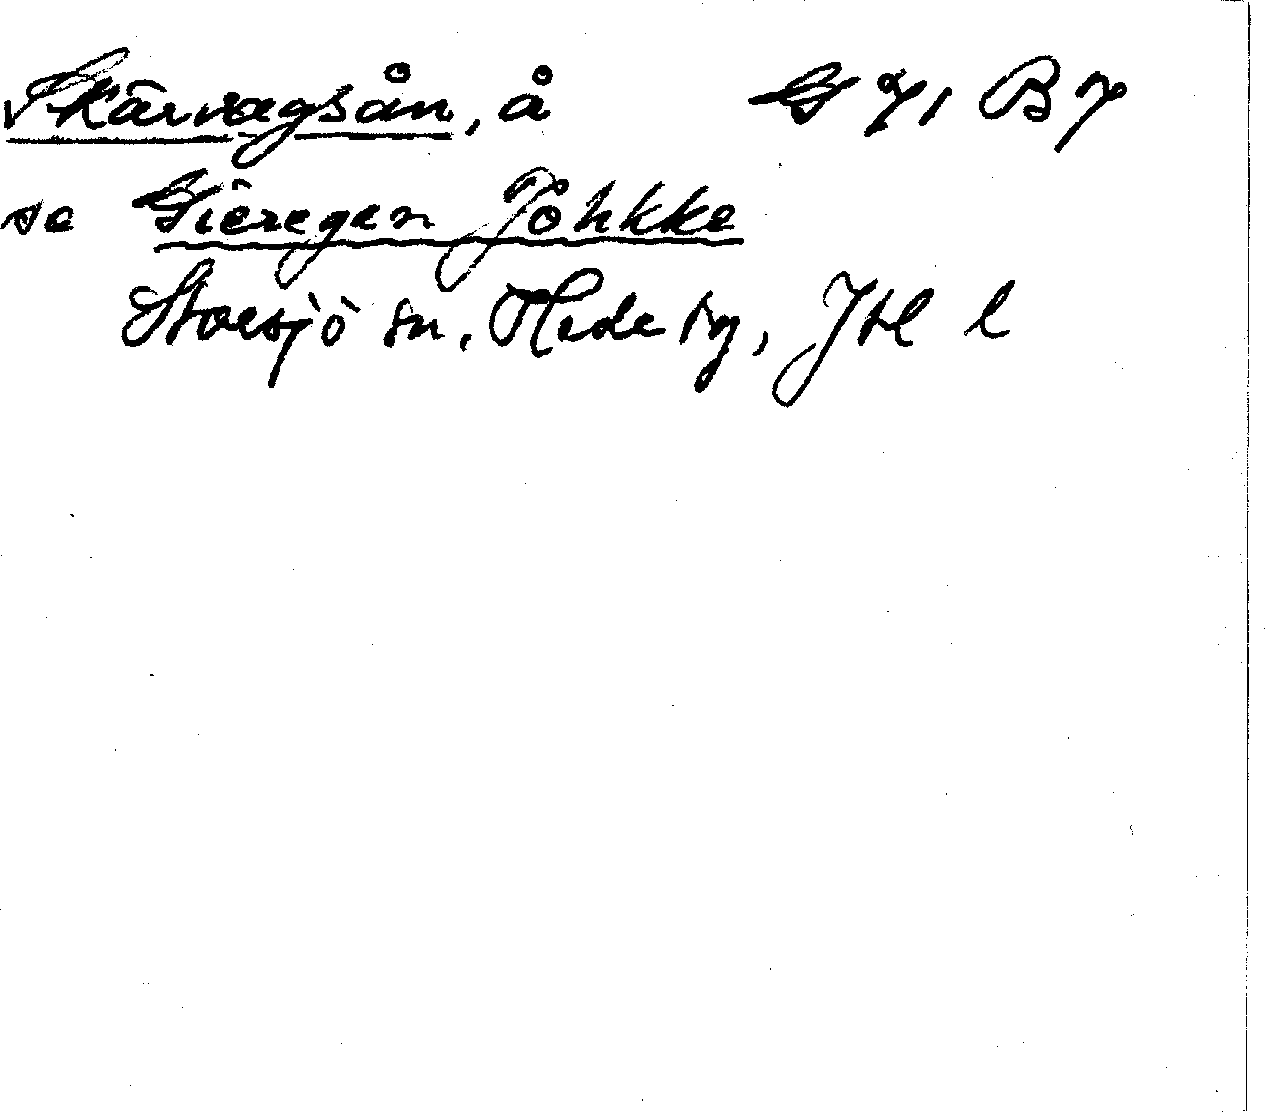 Skärvagsån, å G 71 B7
se Gieregen Jåhkke
Storsjö sn, Hede tg, Jtl l